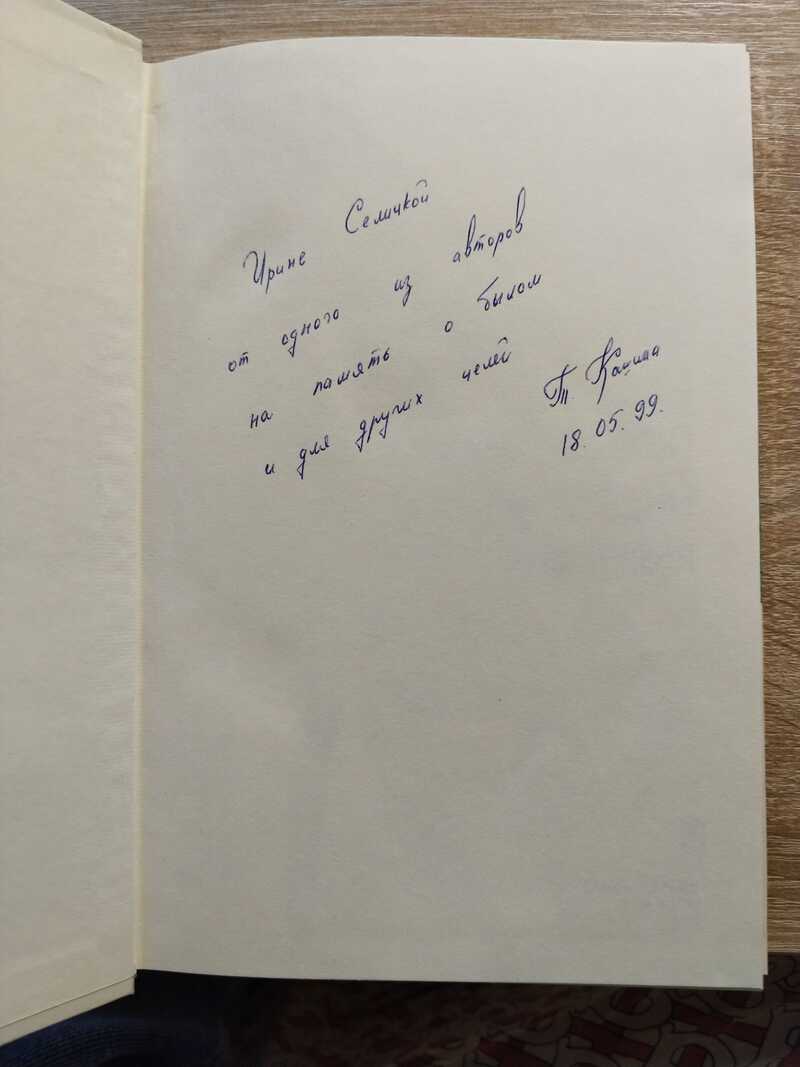 Ирине Селицкой
от одного из авторов
на память о былом
и для других целей
Т.
18.05.99.